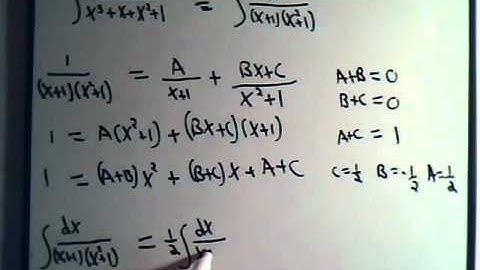 ∫ x³+x+x²+1 = ∫ (x+1)(x²+1)
1/((x+1)(x²+1)) = A/(x+1) + (Bx+C)/(x²+1)
A+B=0
B+C=0
1 = A(x²+1) + (Bx+C)(x+1)
A+C = 1
1 = (A+B)x² + (B+C)x + A+C
C=½ B=-½ A=½
∫ dx/((x+1)(x²+1)) = ½ ∫ dx/